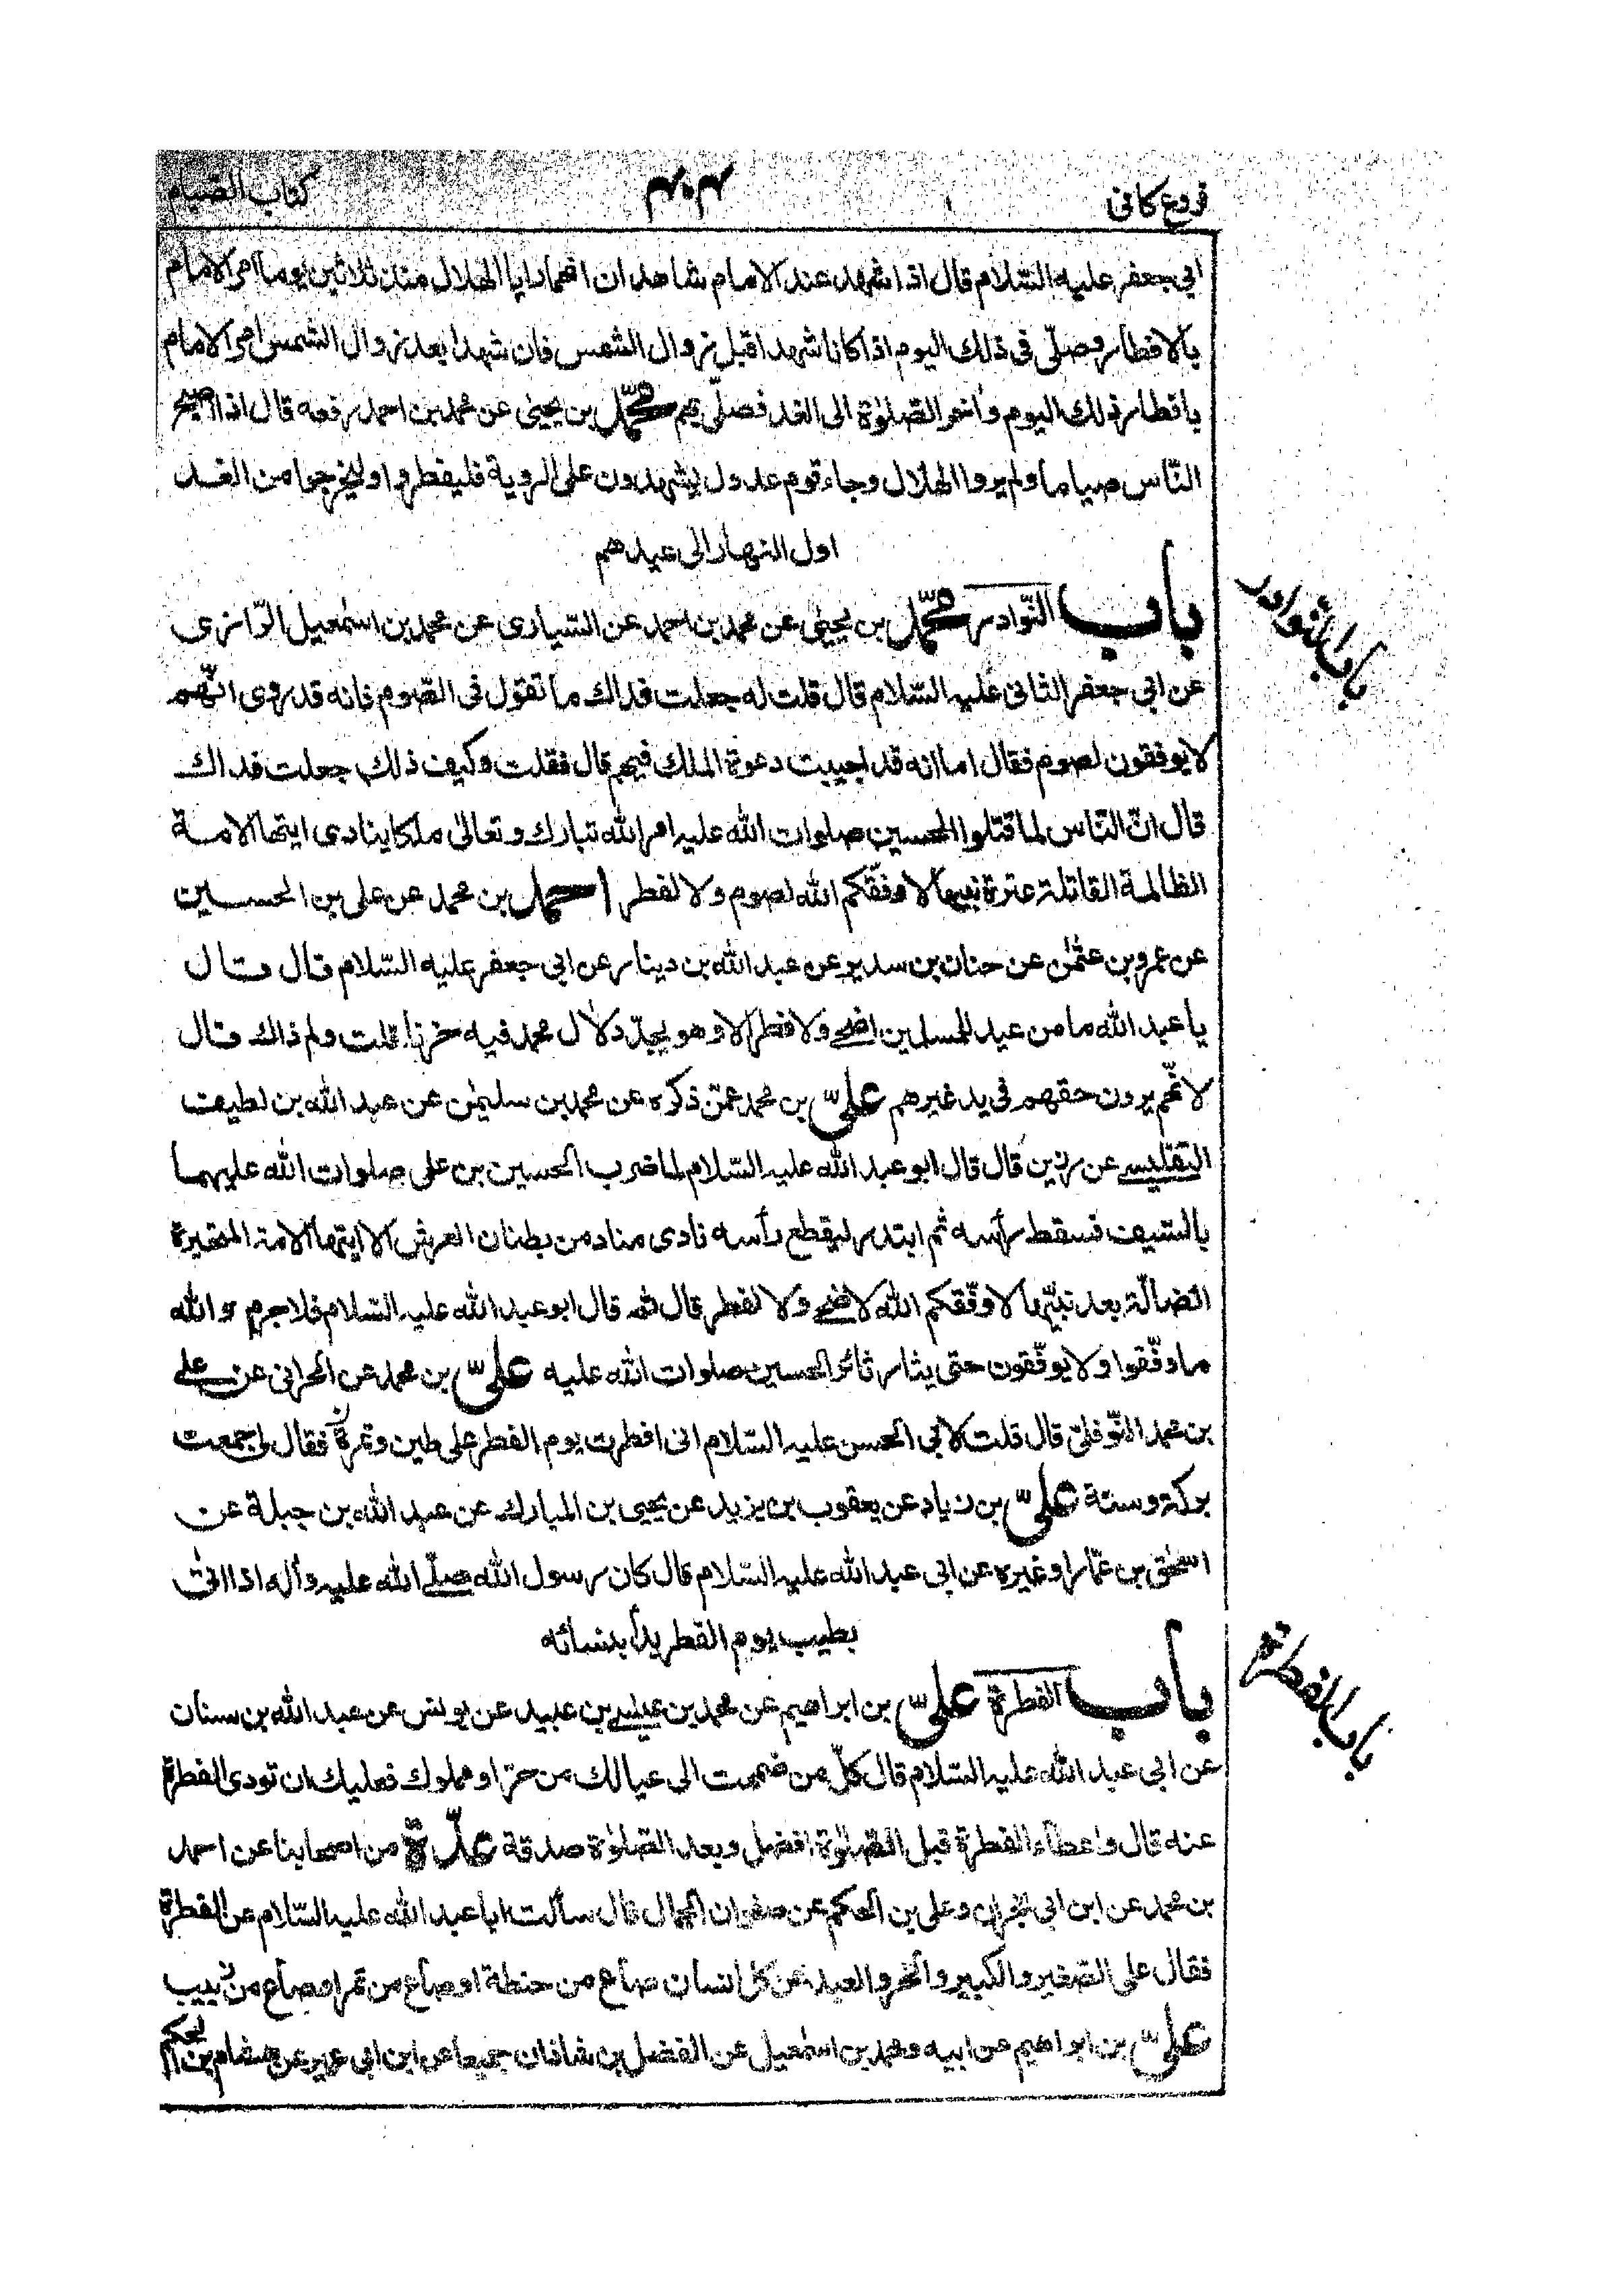 فروع كافى
۴۰۴
كتاب الصيام
ابي جعفر عليه السّلام قال اذا شهد عند الامام شاهدان انهما رايا الهلال منذ ثلاثين يوما امر الامام
بالافطار وصلّى فى ذلك اليوم اذا كانا شهدا قبل زوال الشمس فان شهدا بعد زوال الشمس امر الامام
بافطار ذلك اليوم وأخر الصلوٰة الى الغد فصلّى بهم محمّد بن يحيىٰ عن محمد بن احمد رفعه قال اذا اصبح
النّاس صياما ولم يروا الهلال وجاء قوم عدول يشهدون على الروية فليفطروا وليخرجوا من الغد
اول النهار الى عيدهم
باب النّوادر محمّد بن يحيىٰ عن محمد بن احمد عن السّيارى عن محمد بن اسمٰعيل الرّازى
باب النّوادر
عن ابي جعفر الثانى عليه السّلام قال قلت له جعلت فداك ما تقول فى الصّوم فانه قد روى انّهم
لا يوفقون لصوم فقال اما انه قد اجيبت دعوة الملك فيهم قال فقلت وكيف ذلك جعلت فداك
قال انّ النّاس لما قتلوا الحسين صلوات الله عليه امر الله تبارك وتعالىٰ ملكا ينادى ايتها الامة
الظالمة القاتلة عترة نبيها لا وفّقكم الله لصوم ولا لفطر احمد بن محمد عن على بن الحسين
عن عمرو بن عثمٰن عن حنان بن سدير عن عبد الله بن دينار عن ابي جعفر عليه السّلام قال قال
يا عبد الله ما من عيد للمسلمين اضحى ولا فطر الا وهو يجدّد لاٰل محمد فيه حزنا قلت ولم ذاك قال
لانّهم يرون حقهم فى يد غيرهم علىّ بن محمد عمّن ذكره عن محمد بن سليمٰن عن عبد الله بن لطيف
التفليسى عن رزين قال قال ابو عبد الله عليه السّلام لما ضرب الحسين بن على صلوات الله عليهما
بالسّيف فسقط رأسه ثم ابتدر ليقطع رأسه نادى مناد من بطنان العرش الا ايتها الامة المتحيرة
الضالّة بعد نبيّها لا وفّقكم الله لاضحى ولا لفطر قال ثم قال ابو عبد الله عليه السّلام فلا جرم والله
ما وفّقوا ولا يوفّقون حتى يثار ثائر الحسين صلوات الله عليه علىّ بن محمد عن الحرانى عن على
بن محمد النّوفلىّ قال قلت لابي الحسن عليه السّلام انى افطرت يوم الفطر على طين وتمرة فقال لى جمعت
بركة وسنة علىّ بن زياد عن يعقوب بن يزيد عن يحيى بن المبارك عن عبد الله بن جبلة عن
اسحٰق بن عمّار او غيره عن ابى عبد الله عليه السّلام قال كان رسول الله صلّى الله عليه وأله اذا اتى
بطيب يوم الفطر بدأ بنسائه
باب الفطرة علىّ بن ابراهيم عن محمد بن عيسى بن عبيد عن يونس عن عبد الله بن سنان
باب الفطرة
عن ابى عبد الله عليه السّلام قال كلّ من ضممت الى عيالك من حرّ او مملوك فعليك ان تودى الفطرة
عنه قال واعطاء الفطرة قبل الصّلوٰة افضل وبعد الصّلوٰة صدقة عدّة من اصحابنا عن احمد
بن محمد عن ابن ابي نجران وعلى بن الحكم عن صفوان الجمال قال سألت ابا عبد الله عليه السّلام عن الفطرة
فقال على الصّغير والكبير والحرّ والعبد عن كل انسان صاع من حنطة او صاع من تمر او صاع من زبيب
علىّ بن ابراهيم عن ابيه ومحمد بن اسمٰعيل عن الفضل بن شاذان جميعا عن ابن ابي عمير عن هشام بن الحكم